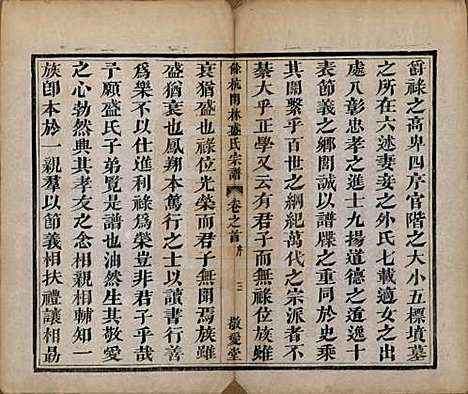 爵祿之高卑四序官階之大小五標墳墓
之所在六述妻妾之外氏七載適女之出
處八彰忠孝之進士九揚道德之遁逸十
表節義之門閭誠以譜牒之重同於史乘
其關繫乎百世之綱紀萬代之宗派者不
綦大乎正學又云有君子而無祿位族雖
餘杭閑林盛氏宗譜 卷之首 序 三 敬愛堂
衰猶盛也祿位光榮而君子無聞焉族雖
盛猶衰也鳳翔本篤行之士以讀書行善
為樂不以仕進利祿為榮豈非君子也哉
予願盛氏子弟覽是譜也油然生其敬愛
之心勃然典其孝友之念相親相輔知一
族卽本於一親羣以節義相扶禮讓相勗